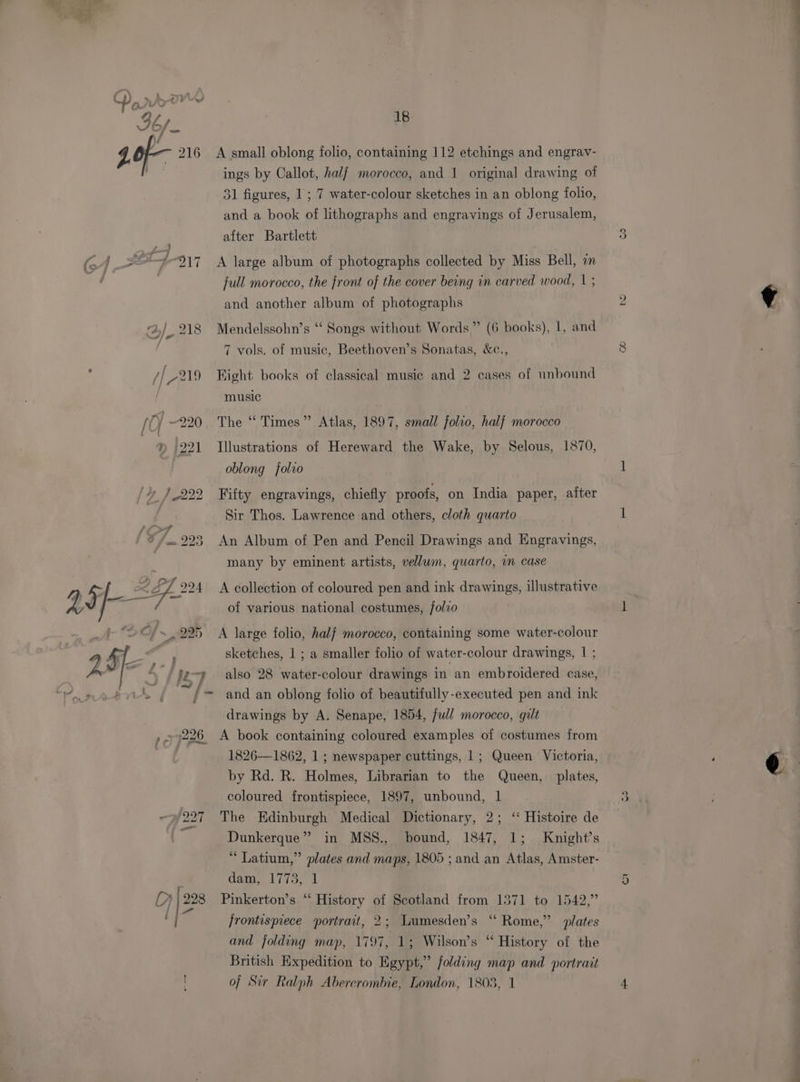 18
216 A small oblong folio, containing 112 etchings and engrav-
ings by Callot, half morocco, and 1 original drawing of
31 figures, 1 ; 7 water-colour sketches in an oblong folio,
and a book of lithographs and engravings of Jerusalem,
after Bartlett 3
217 A large album of photographs collected by Miss Bell, in
full morocco, the front of the cover being in carved wood, 1 ;
and another album of photographs 2
2/- 218 Mendelssohn's “ Songs without Words ” (6 books), 1, and
7 vols. of music, Beethoven's Sonatas, &c., 8
219 Eight books of classical music and 2 cases of unbound
music
10/ 220 The “ Times ” Atlas, 1897, small folio, half morocco
221 Illustrations of Hereward the Wake, by Selous, 1870,
oblong folio 1
222 Fifty engravings, chiefly proofs, on India paper, after
Sir Thos. Lawrence and others, cloth quarto 1
223 An Album of Pen and Pencil Drawings and Engravings,
many by eminent artists, vellum, quarto, in case
25/- 224 A collection of coloured pen and ink drawings, illustrative
of various national costumes, folio 1
225 A large folio, half morocco, containing some water-colour
sketches, 1 ; a smaller folio of water-colour drawings, 1 ;
also 28 water-colour drawings in an embroidered case,
and an oblong folio of beautifully-executed pen and ink
drawings by A. Senape, 1854, full morocco, gilt
226 A book containing coloured examples of costumes from
1826—1862, 1 ; newspaper cuttings, 1 ; Queen Victoria,
by Rd. R. Holmes, Librarian to the Queen, plates,
coloured frontispiece, 1897, unbound, 1 3
227 The Edinburgh Medical Dictionary, 2 ; “ Histoire de
Dunkerque ” in MSS., bound, 1847, 1 ; Knight's
“ Latium,” plates and maps, 1805 ; and an Atlas, Amster-
dam, 1773, 1 5
228 Pinkerton's “ History of Scotland from 1371 to 1542,”
frontispiece portrait, 2 ; Lumesden's “ Rome,” plates
and folding map, 1797, 1 ; Wilson's “ History of the
British Expedition to Egypt,” folding map and portrait
of Sir Ralph Abercrombie, London, 1803, 1 4